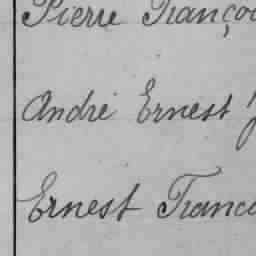 Pierre Franço
André Ernest
Ernest Franc